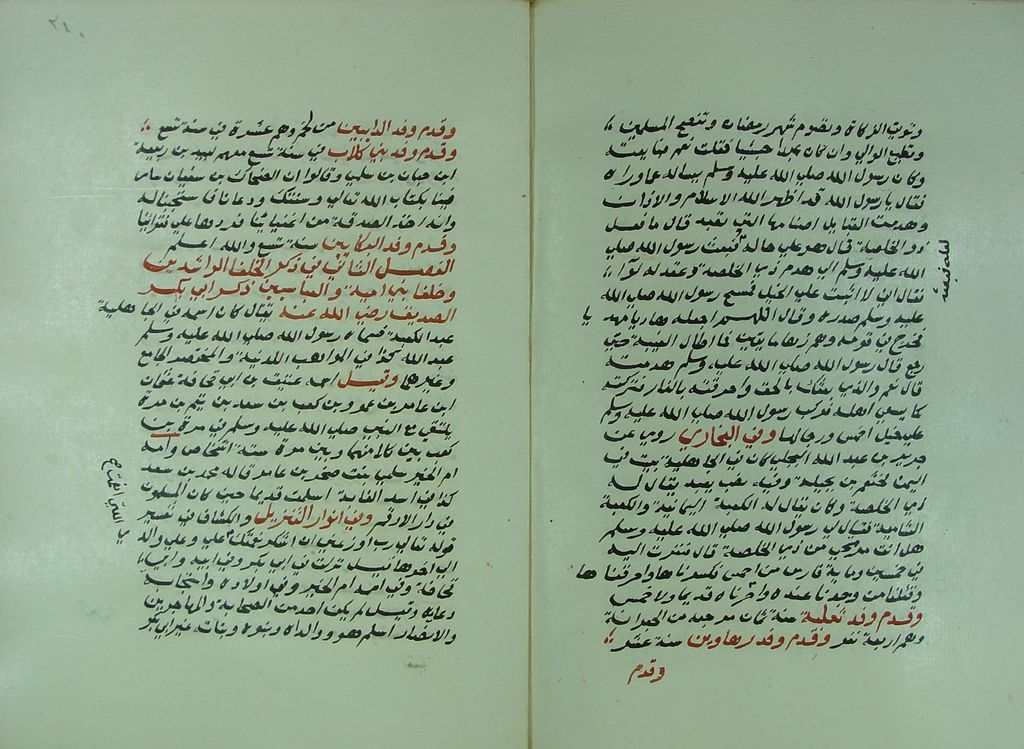 وتوتي الزكاة وتصوم شهر رمضان وتنصح المسلمين
وتطيع الوالي وان كان عبدا حبشيا فقلت نعم فبايعته
وكان رسول الله صلى الله عليه وسلم يساله عما وراه
فقال يا رسول الله قد اظهر الله الاسلام والاذان
وهدمت القبايل اصنامها التي تعبد قال ما فعل
ذو الخلصة قال هو على حاله فبعث رسول الله صلى
الله عليه وسلم الى هدم ذي الخلصة وعقد له لوآ
فقال اني لا اثبت على الخيل فمسح رسول الله صلى الله
عليه وسلم صدره وقال اللهم اجعله هاديا مهد
يا
فخرج في قومه وهم زها مايتين فما اطال الغيبة حتى
رجع قال رسول الله صلى الله عليه وسلم هدمته
قال نعم والذي بعثك بالحق واحرقته بالنار فتركته
كما يسوء اهله فبرك رسول الله صلى الله عليه وسلم
على خيل احمس ورجالها وفي البخاري روي عن
جرير بن عبد الله البجلي كان في الجاهلية بيت في
اليمن لخثعم بن بجيلة وفيه نصب يعبد يقال له
ذي الخلصة وكان يقال له الكعبة اليمانية والكعبة
الشامية فقال لي رسول الله صلى الله عليه وسلم
هل انت مريحي من ذي الخلصة قال فنفرت اليه
في خمسين ومائة فارس من احمس فكسرناها واحرقنا
ها
وقتلنا من وجدنا عنده واخرناه قديما ولاحمس
وقدم وفد ثعلبة سنة ثمان مرجعه من الجعرانة
وهم اربعة نفر وقدم وفد رهاوين سنة عشر
وقدم
٢٤٠
وقدم وفد الداريين من لخم وهم عشرة في سنة تسع
وقدم وفد بني كلاب في سنة تسع معهم لبيد بن ربيعة
ابن حبان بن سلمى وقالوا ان الضحاك بن سفيان سار
فينا بكتاب الله تعالى وسنتك ودعانا فاستجبنا له
وانه اخذ الصدقة من اغنيائنا فردها على فقرائنا
وقدم وفد البكايين سنة تسع والله اعلم
الفصل الثاني في ذكر الخلفا الراشدين
وخلفا بني امية والعباسيين ذكر ابي بكر
الصديق رضي الله عنه يقال كان اسمه في الجاهلية
عبد الكعبة فسماه رسول الله صلى الله عليه وسلم
عبد الله كذا في المواهب اللدنية والمختصر الجامع
وغيرها وقيل اسمه عتيق بن ابي قحافة عثمان
ابن عامر بن عمرو بن كعب بن سعد بن تيم بن مرة
يلتقي مع النبي صلى الله عليه وسلم في مرة بن
كعب بين كل منهما وبين مرة ستة اشخاص وامه
ام الخير سلمى بنت صخر بن عامر قاله محمد بن سعد
كذا في اسد الغابة اسلمت قديما حين كان المسلمون
في دار الارقم وفي انوار التنزيل والكشاف في تفسير
قوله تعالى رب اوزعني ان اشكر نعمتك علي وعلى والدي
الى اخرها قيل نزلت في ابي بكر وفي ابيه وابي
قحافة وفي امه ام الخير وفي اولاده واستجابة
دعايه وقيل لم يكن احد من الصحابة والمهاجرين
والانصار اسلم هو ووالداه وبنوه وبناته غير ابي بكر